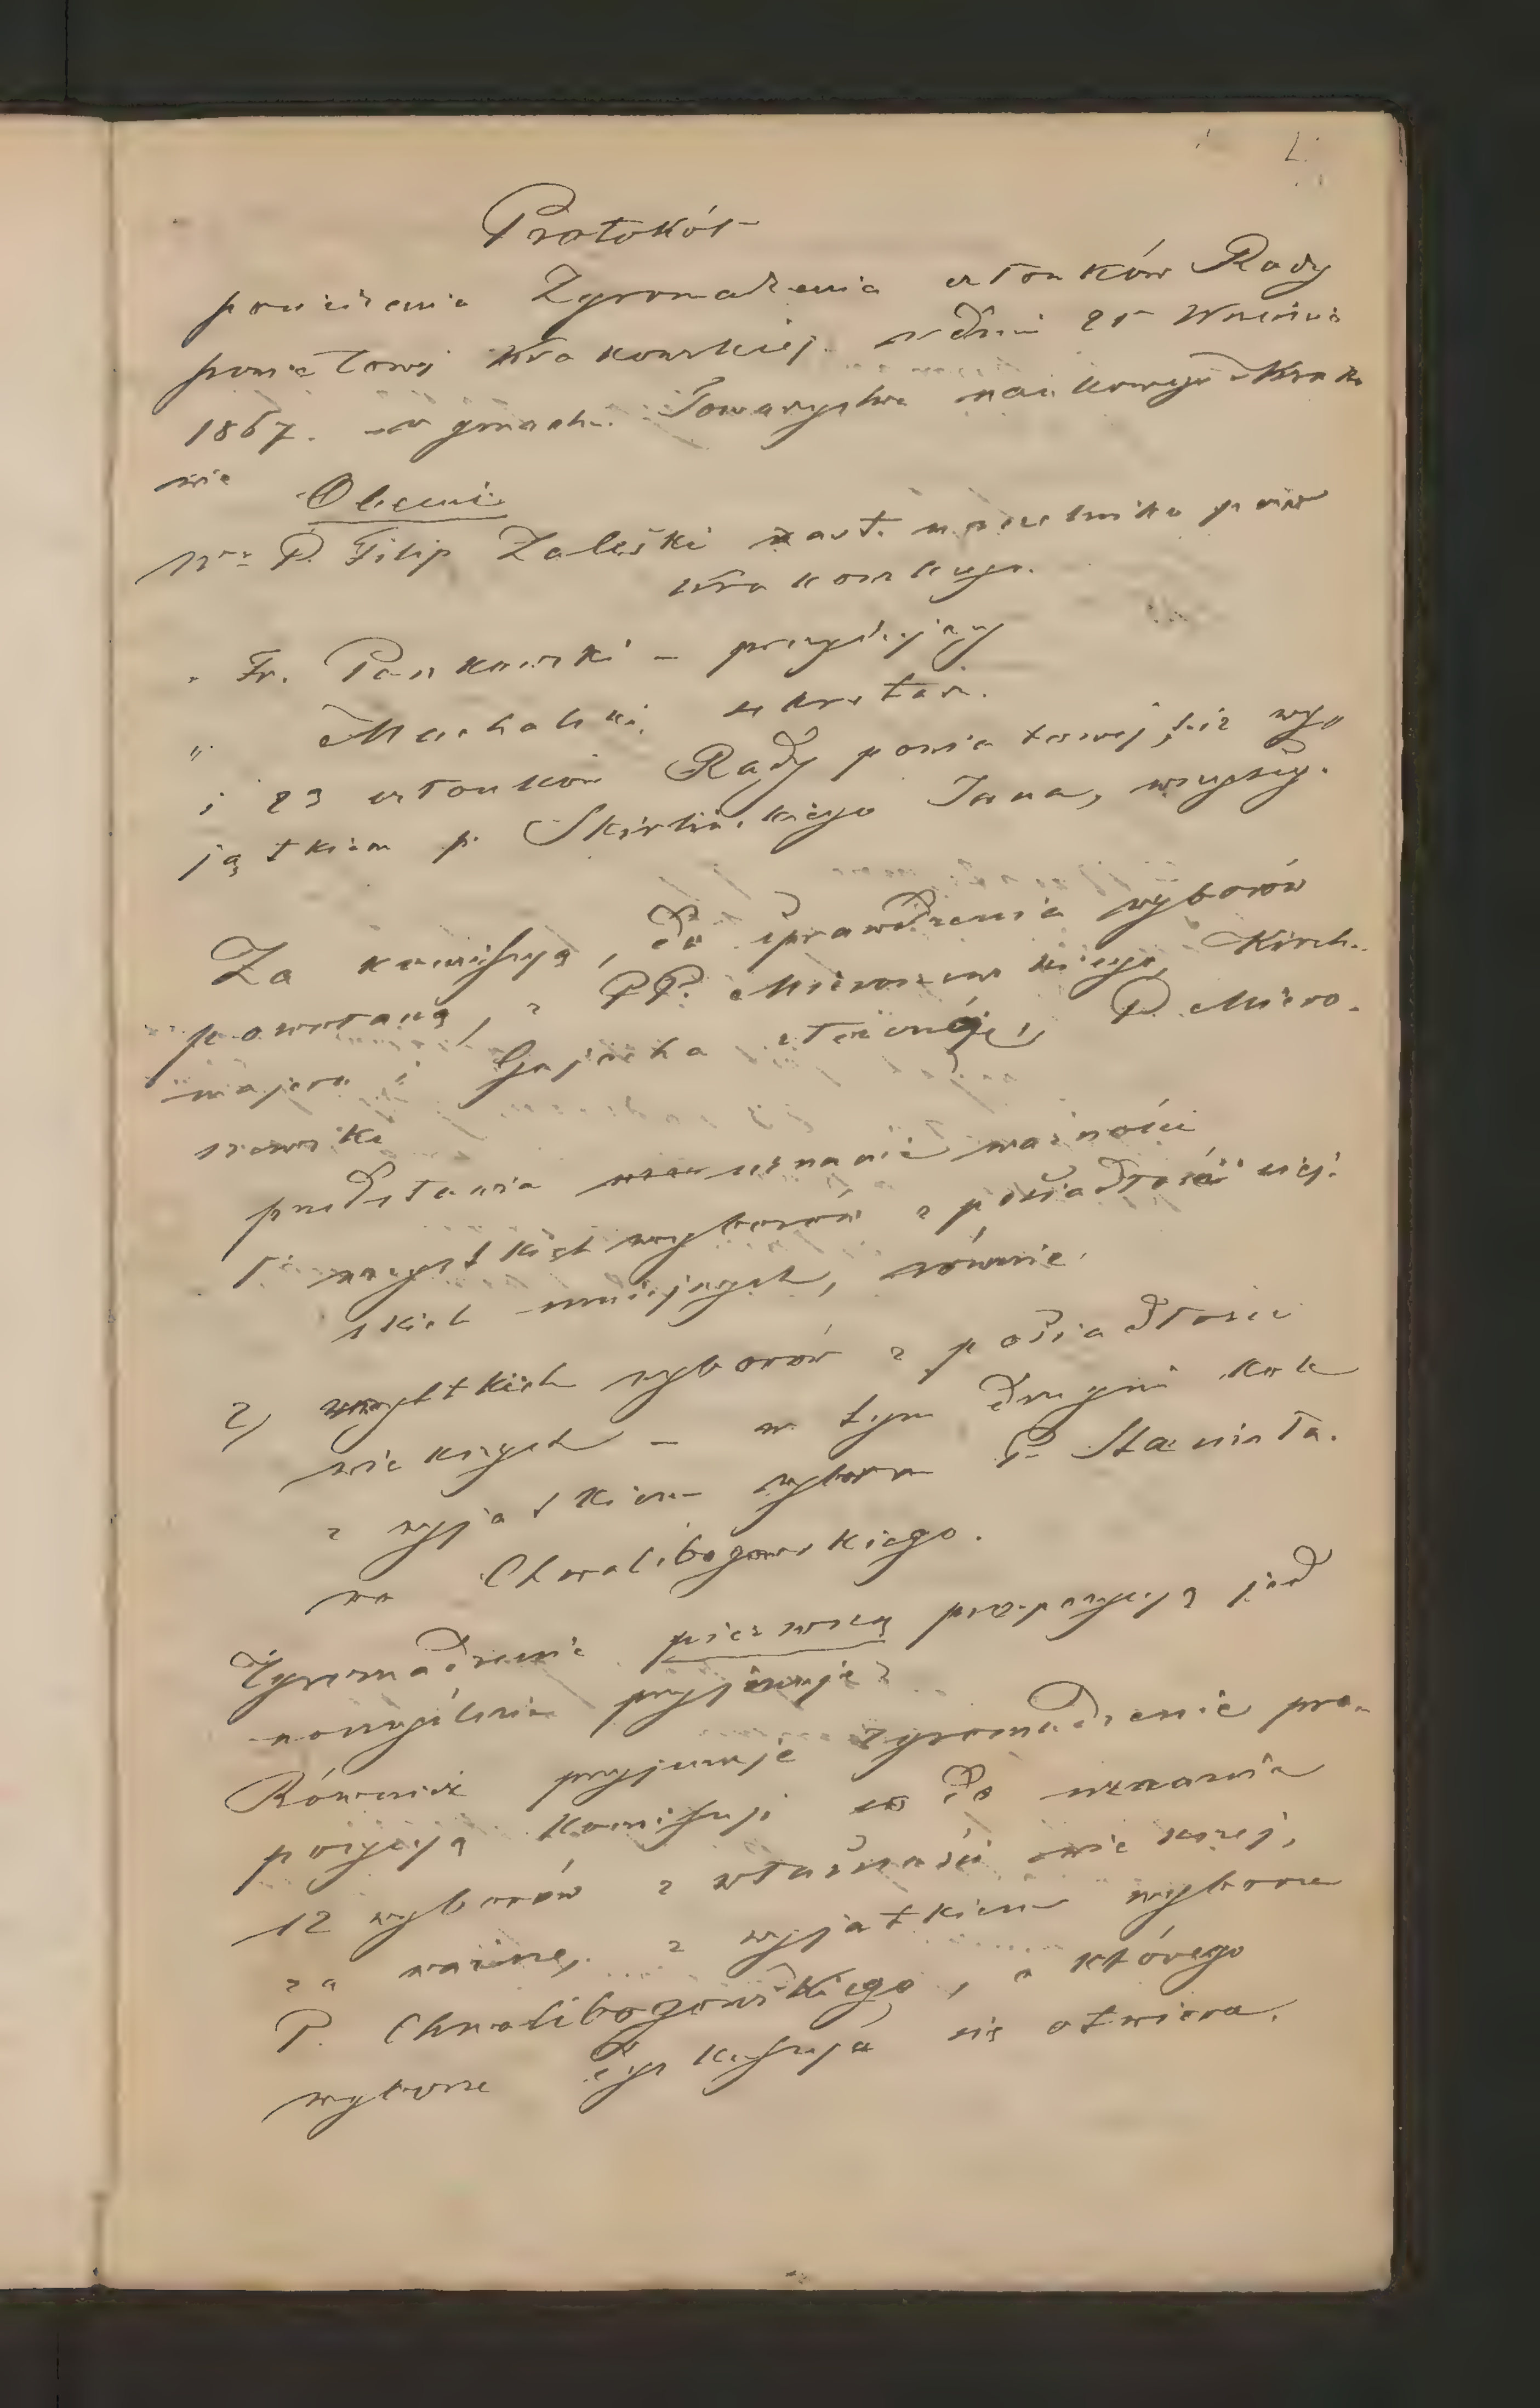 Protokół
posiedzenia Zgromadzenia członków Rady
powiatowej Krakowskiej w dniu 25 Września
1867. w gmachu Towarzystwa naukowego Krako
wie
Obecni
Wny P. Filip Zaleski zast. naczelnika powia
krakowskiego.
" Fr. Paszkowski – prezydujący
" Machalski, sekretarz.
i 23 członków Rady powiatowej, z wy
jątkiem p. Skirlińskiego Jana, wszyscy.
Za komissyą, do sprawdzenia wyborów
powołaną, z PP. Mieroszewskiego, Kirch-
majera i Gajocha złożoną, P. Miero-
szewski
przedstawia uznanie ważności
1° wszystkich wyborów z posiadłości wiej-
skich mniejszych, równie
2) wszystkich wyborów z posiadłości
większych – w tym drugim
z wyjątkiem wyboru P. Stanisła-
wa Chwalibogowskiego.
Zgromadzenie pierwszą propozycyą jed
nomyślnie przyjmuje
Również przyjmuje zgromadzenie pro-
pozycyą komissyi co do uznania
12 wyborów z własności większej,
za ważne, z wyjątkiem wyboru
P. Chwalibogowskiego, o którego
wyborze dyskussyja się otwiera.